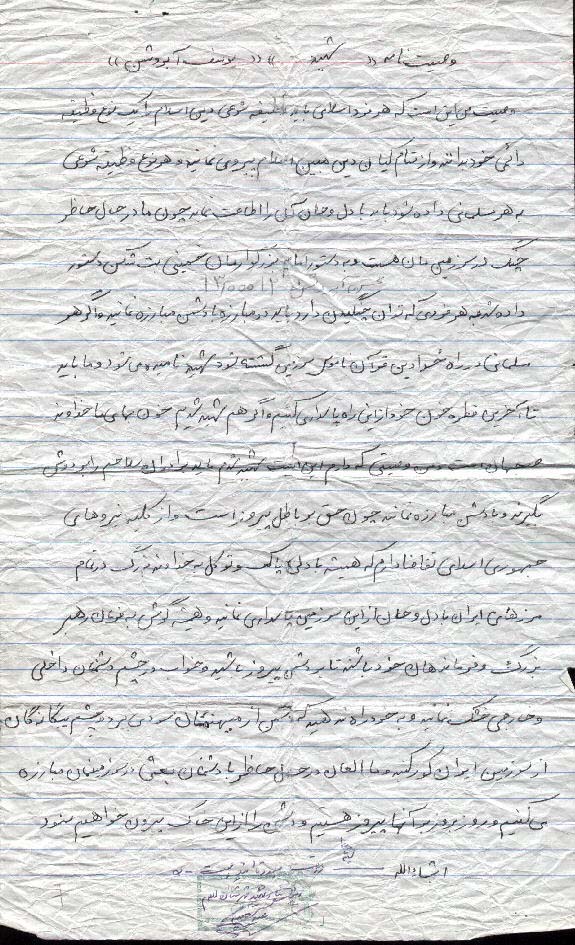 وصیت نامه «« شهید »» «« یوسف آبروشن »»
وصیت من این است که هر فرد اسلامی باید وظیفه شرعی دین اسلام را یک نوع وظیفه
دائمی خود بداند و از تمام دین مبین اسلام پیروی نمایند و هر نوع وظیفه شرعی
به هر مسلمانی داده شود باید با دل و جان آن را اطاعت نماید چون ما در حال حاظر
جنگ در سرزمین مان هست و به دستور امام بزرگوارمان خمینی بت شکن دستور
داده شد به هر فردی که توان جنگیدن دارد باید در مبارزه با دشمن مبارزه نمایند و اگر هر
مسلمانی در راه خدا دین قرآن ناموس سرزمین کشته شود شهید نامیده می شود و ما باید
تا آخرین قطره خون خود از این راه پاسداری کنیم و اگر هم شهید شدیم خون بهای ما خداوند
است و من وصیتی که دارم این است شهید شدم باید برادران سلاحم را بر دوش
بگیرند و با دشمن مبارزه نمایند چون حق بر باطل پیروز است و از کلیه نیروهای
جمهوری اسلامی تقاضا دارم که همیشه با دلی پاک و توکل به خداوند بزرگ در تمام
مرزهای ایران با دل و جان از این سرزمین پاسداری نمایند و همیشه گوش به فرمان رهبر
بزرگ و فرماندهان خود باشند تا بر دشمن پیروز باشید و خواب در چشم دشمنان داخلی
و خارجی خشک نمایند و به خود راه ندهید که از میهنمان بر چشم بیگانگان
از سرزمین ایران کور کنند و ما الان در حال حاظر با دشمنان بعثی در سرزمینمان مبارزه
می کنیم و روز بروز بر آنها پیروز هستیم و دشمن را از این خاک بیرون خواهیم نمود
انشاءالله